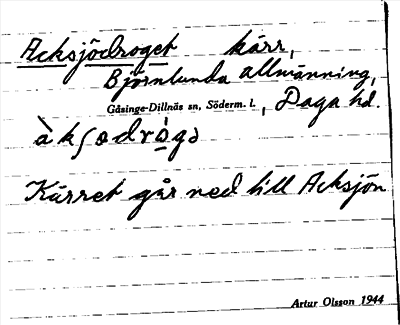 Acksjödroget kärr,
Björnlunda allmänning,
Gåsinge-Dillnäs sn, Söderm. l., Daga hd.
àkʃodrò̱gə
Kärret går ned till Acksjön
Artur Olsson 1944